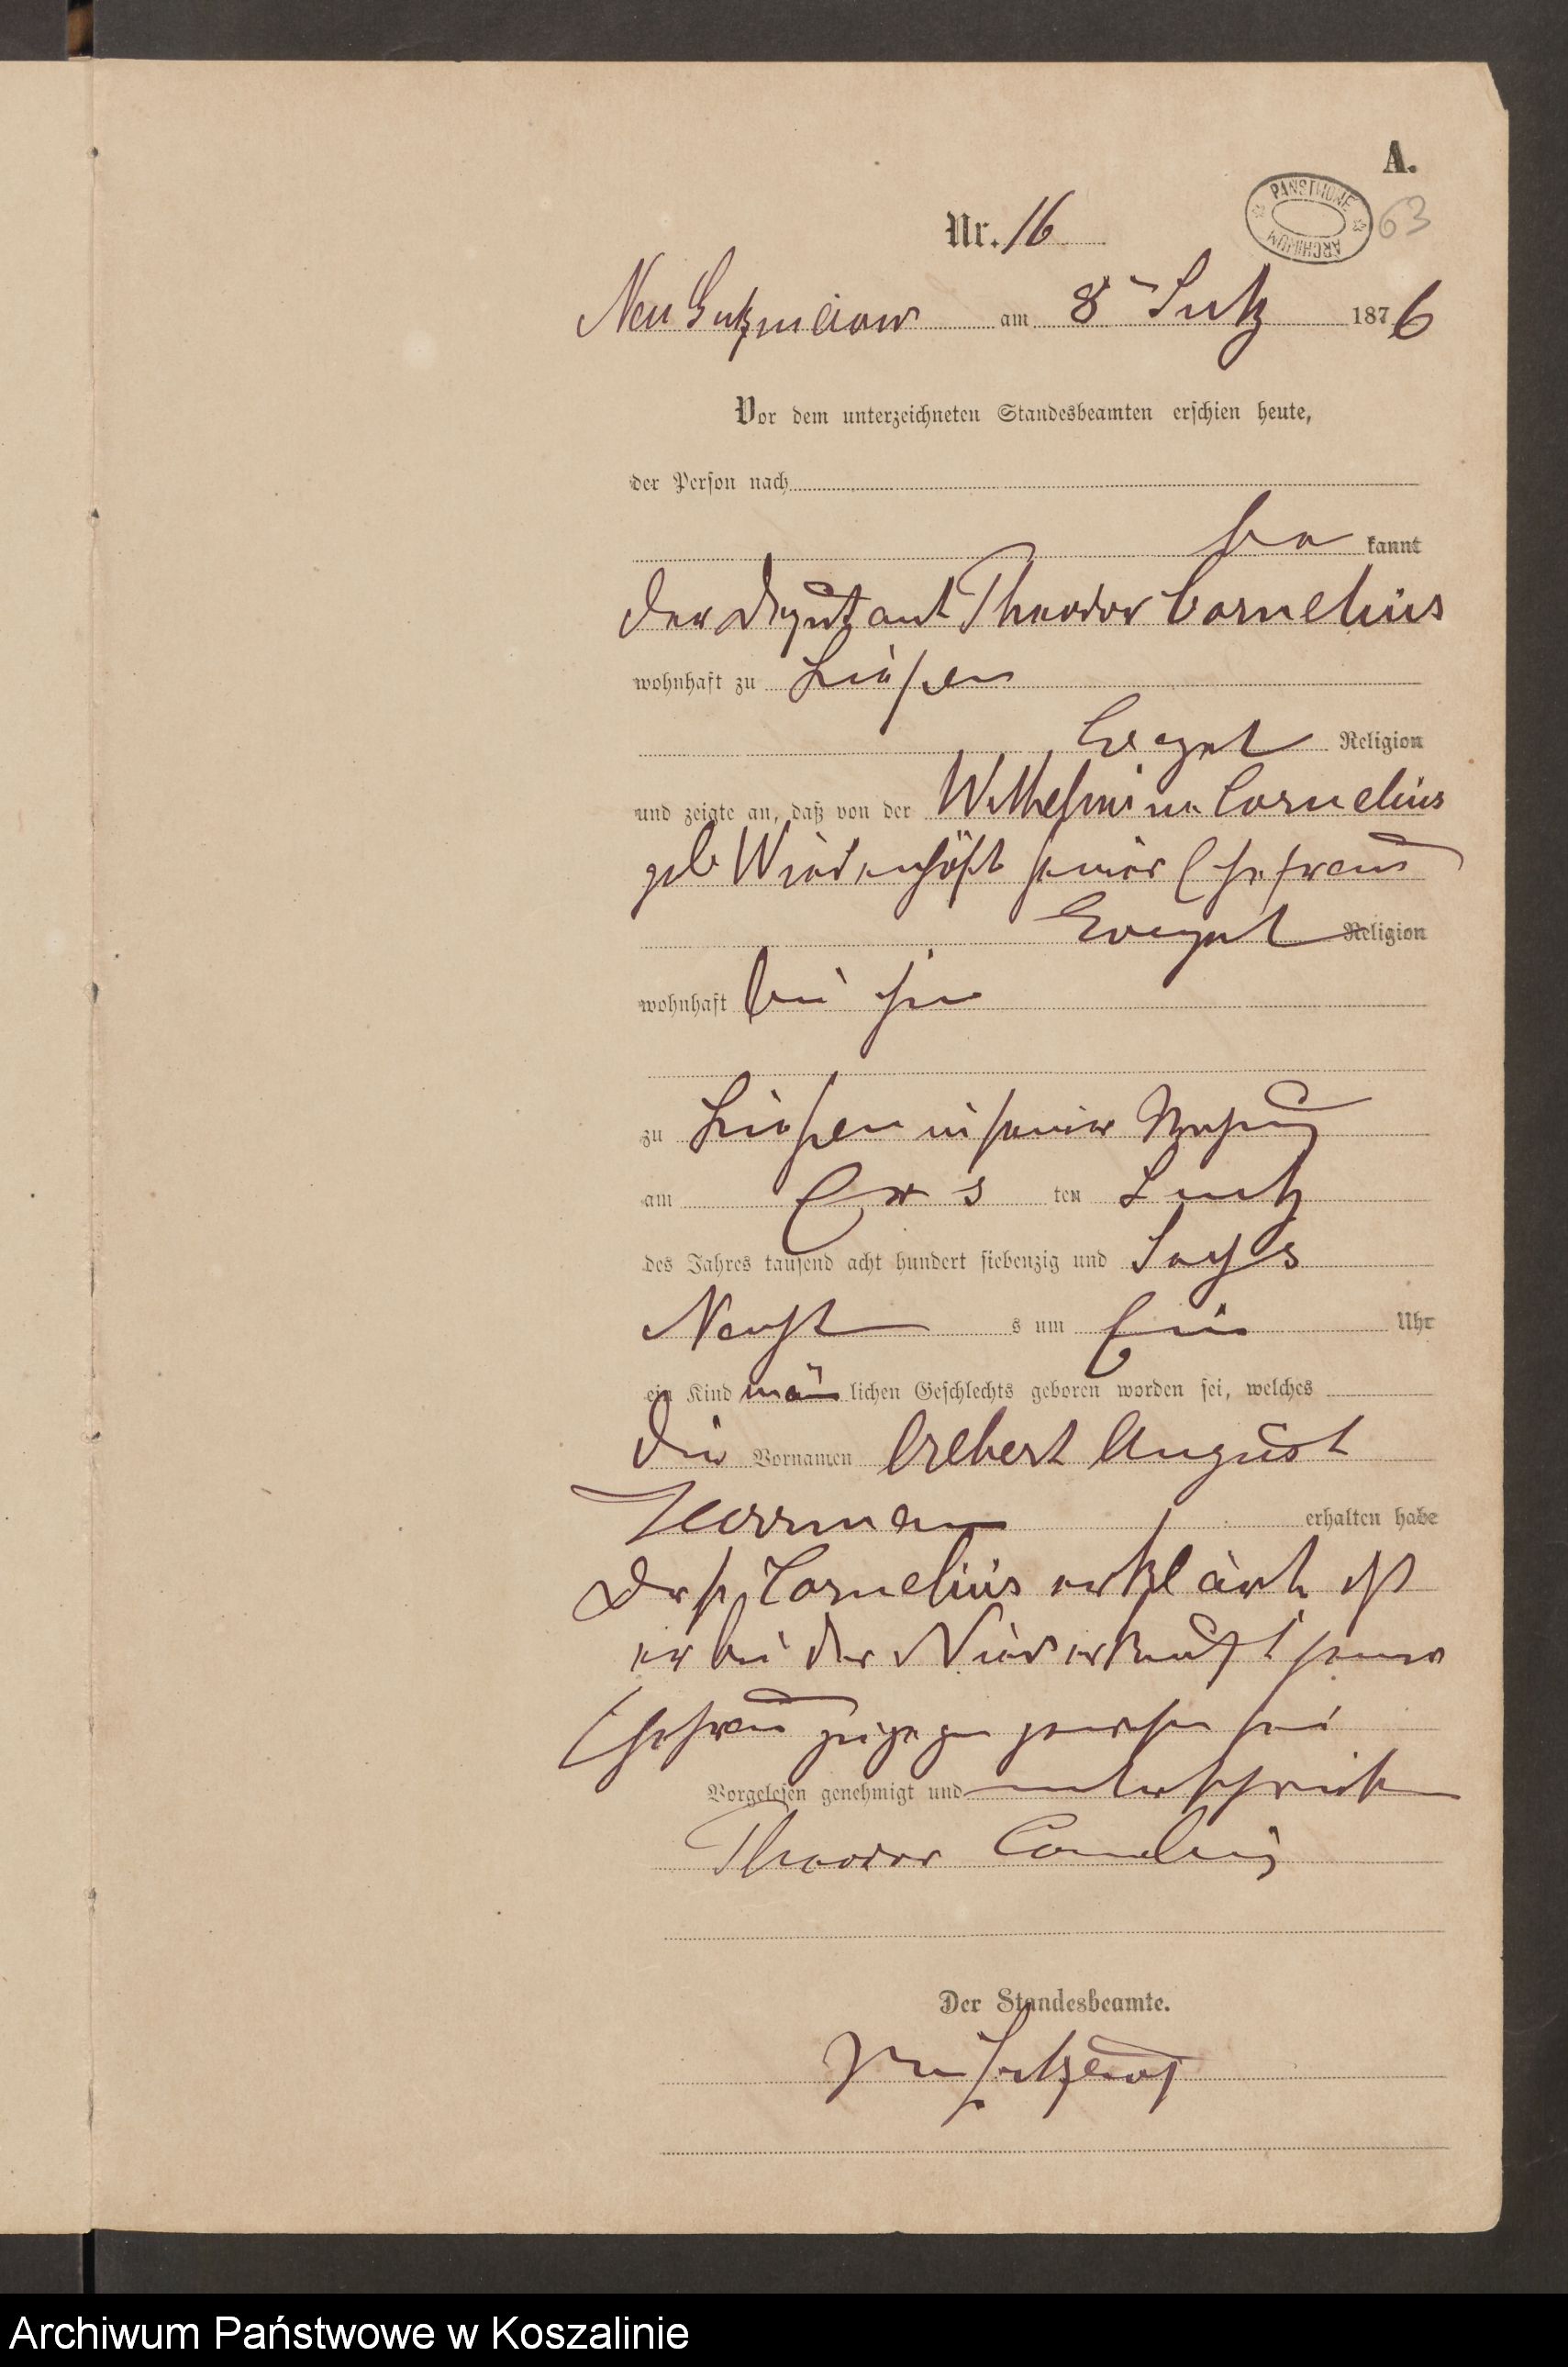 A.
PAŃSTWOWE ARCHIWUM
63
Nr. 16
Neu Gutzmerow am 8 1876
Vor dem unterzeichneten Standesbeamten erschien heute,
der Person nach
be kannt
der Deputant Theodor Cornelius
wohnhaft zu
Evangel Religion
und zeigte an, daß von der Wilhelmine Cornelius
geb Wiedenhöft seiner Ehefrau
Evangel Religion
wohnhaft bei ihm
zu in seiner Wohnung
am ten
des Jahres tausend acht hundert siebenzig und Sechs
Nacht s um Ein Uhr
ein Kind män lichen Geschlechts geboren worden sei, welches
die Vornamen Albert August
Herrman erhalten habe
Der p. Cornelius erklärte
er bei der Niederkunft seiner
Ehefrau zugegen gewesen sei
Vorgelesen genehmigt und unterschrieben
Theodor Cornelius
Der Standesbeamte.
Archiwum Państwowe w Koszalinie